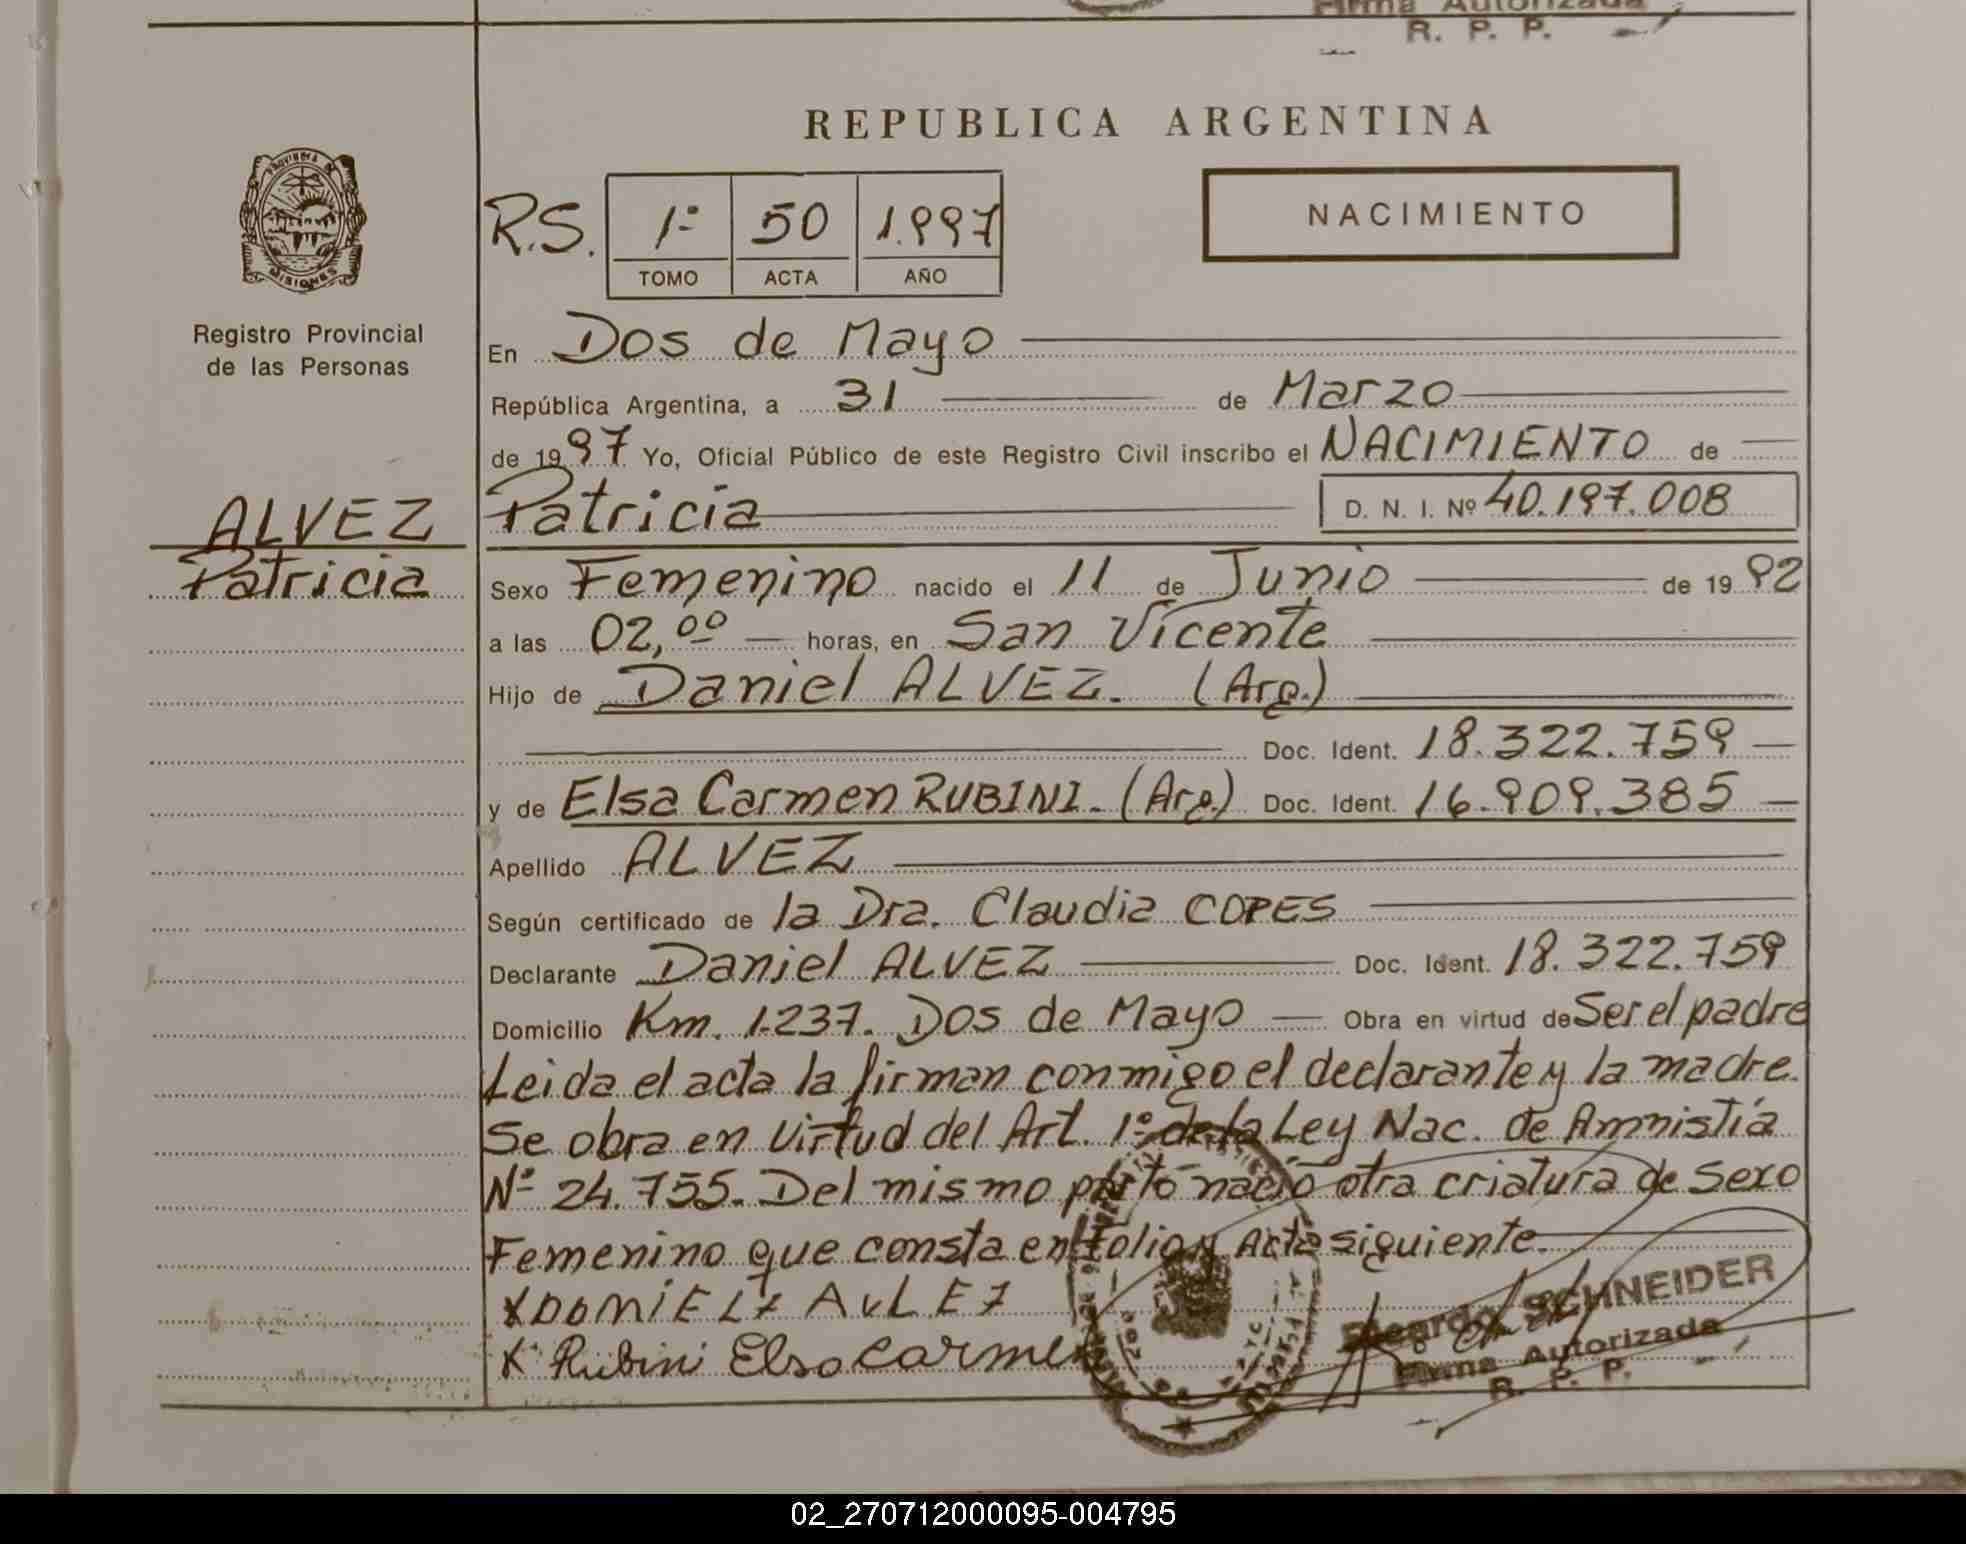 Firma Autorizada
R. P. P.
REPUBLICA ARGENTINA
PROVINCIA DE MISIONES
Registro Provincial
de las Personas
R.S. 1º 50 1.997
TOMO ACTA AÑO
NACIMIENTO
En Dos de Mayo
República Argentina, a 31 de Marzo
de 1997 Yo, Oficial Público de este Registro Civil inscribo el NACIMIENTO de
ALVEZ
Patricia
Patricia D. N. I. Nº 40.197.008
Sexo Femenino nacido el 11 de Junio de 1992
a las 02,00 horas, en San Vicente
Hijo de Daniel ALVEZ. (Arg.)
Doc. Ident. 18.322.759
y de Elsa Carmen RUBINI. (Arg.) Doc. Ident. 16.909.385
Apellido ALVEZ
Según certificado de la Dra. Claudia COPES
Declarante Daniel ALVEZ Doc. Ident. 18.322.759
Domicilio Km. 1.237. Dos de Mayo Obra en virtud de Ser el padre
Leida el acta la firman conmigo el declarante y la madre.
Se obra en virtud del Art. 1º de la Ley Nac. de Amnistía
Nº 24.755. Del mismo parto nació otra criatura de Sexo
Femenino que consta en folio y Acta siguiente.
X DOMIELZ AVLEZ
X Rubini Elsa Carmen
Ricardo SCHNEIDER
Firma Autorizada
R. P. P.
02_270712000095-004795